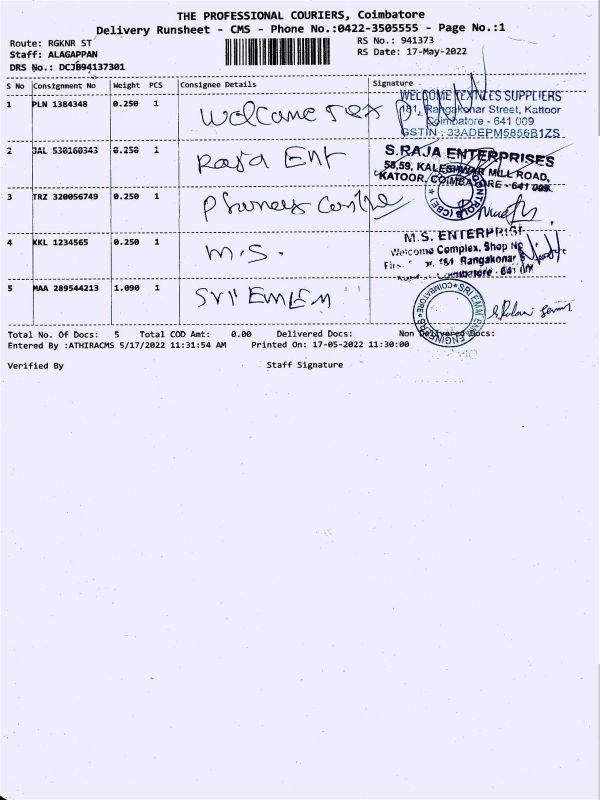 THE PROFESSIONAL COURIERS, Coimbatore
Delivery Runsheet - CMS - Phone No.:0422-3505555 - Page No.:1
Route: RGKNR ST RS No.: 941373
Staff: ALAGAPPAN RS Date: 17-May-2022
DRS No.: DCJ894137301
S No Consignment No Weight PCS Consignee Details Signature
1 PLN 1384348 0.250 1 Welcome Tex
WELCOME TEXTILES SUPPLIERS
181, Rangakonar Street, Kattoor
Coimbatore - 641 009
GSTIN : 33ADEPM5856B1ZS
2 JAL 530160343 0.250 1 Raja Ent
S.RAJA ENTERPRISES
58,59, KALESHWAR MILL ROAD,
KATOOR, COIMBATORE - 641 009.
3 TRZ 320056749 0.250 1
CONTROLS (CBE)
4 KKL 1234565 0.250 1 M.S.
M.S. ENTERPRISE
Welcome Complex, Shop No
181 Rangakonar S
Coimbatore - 641 009
5 MAA 289544213 1.090 1 Sri EMLEM
SRI EMM ENGINEERS COIMBATORE
Total No. Of Docs: 5 Total COD Amt: 0.00 Delivered Docs: Non Delivered Docs:
Entered By :ATHIRACMS 5/17/2022 11:31:54 AM Printed On: 17-05-2022 11:30:00
Verified By Staff Signature